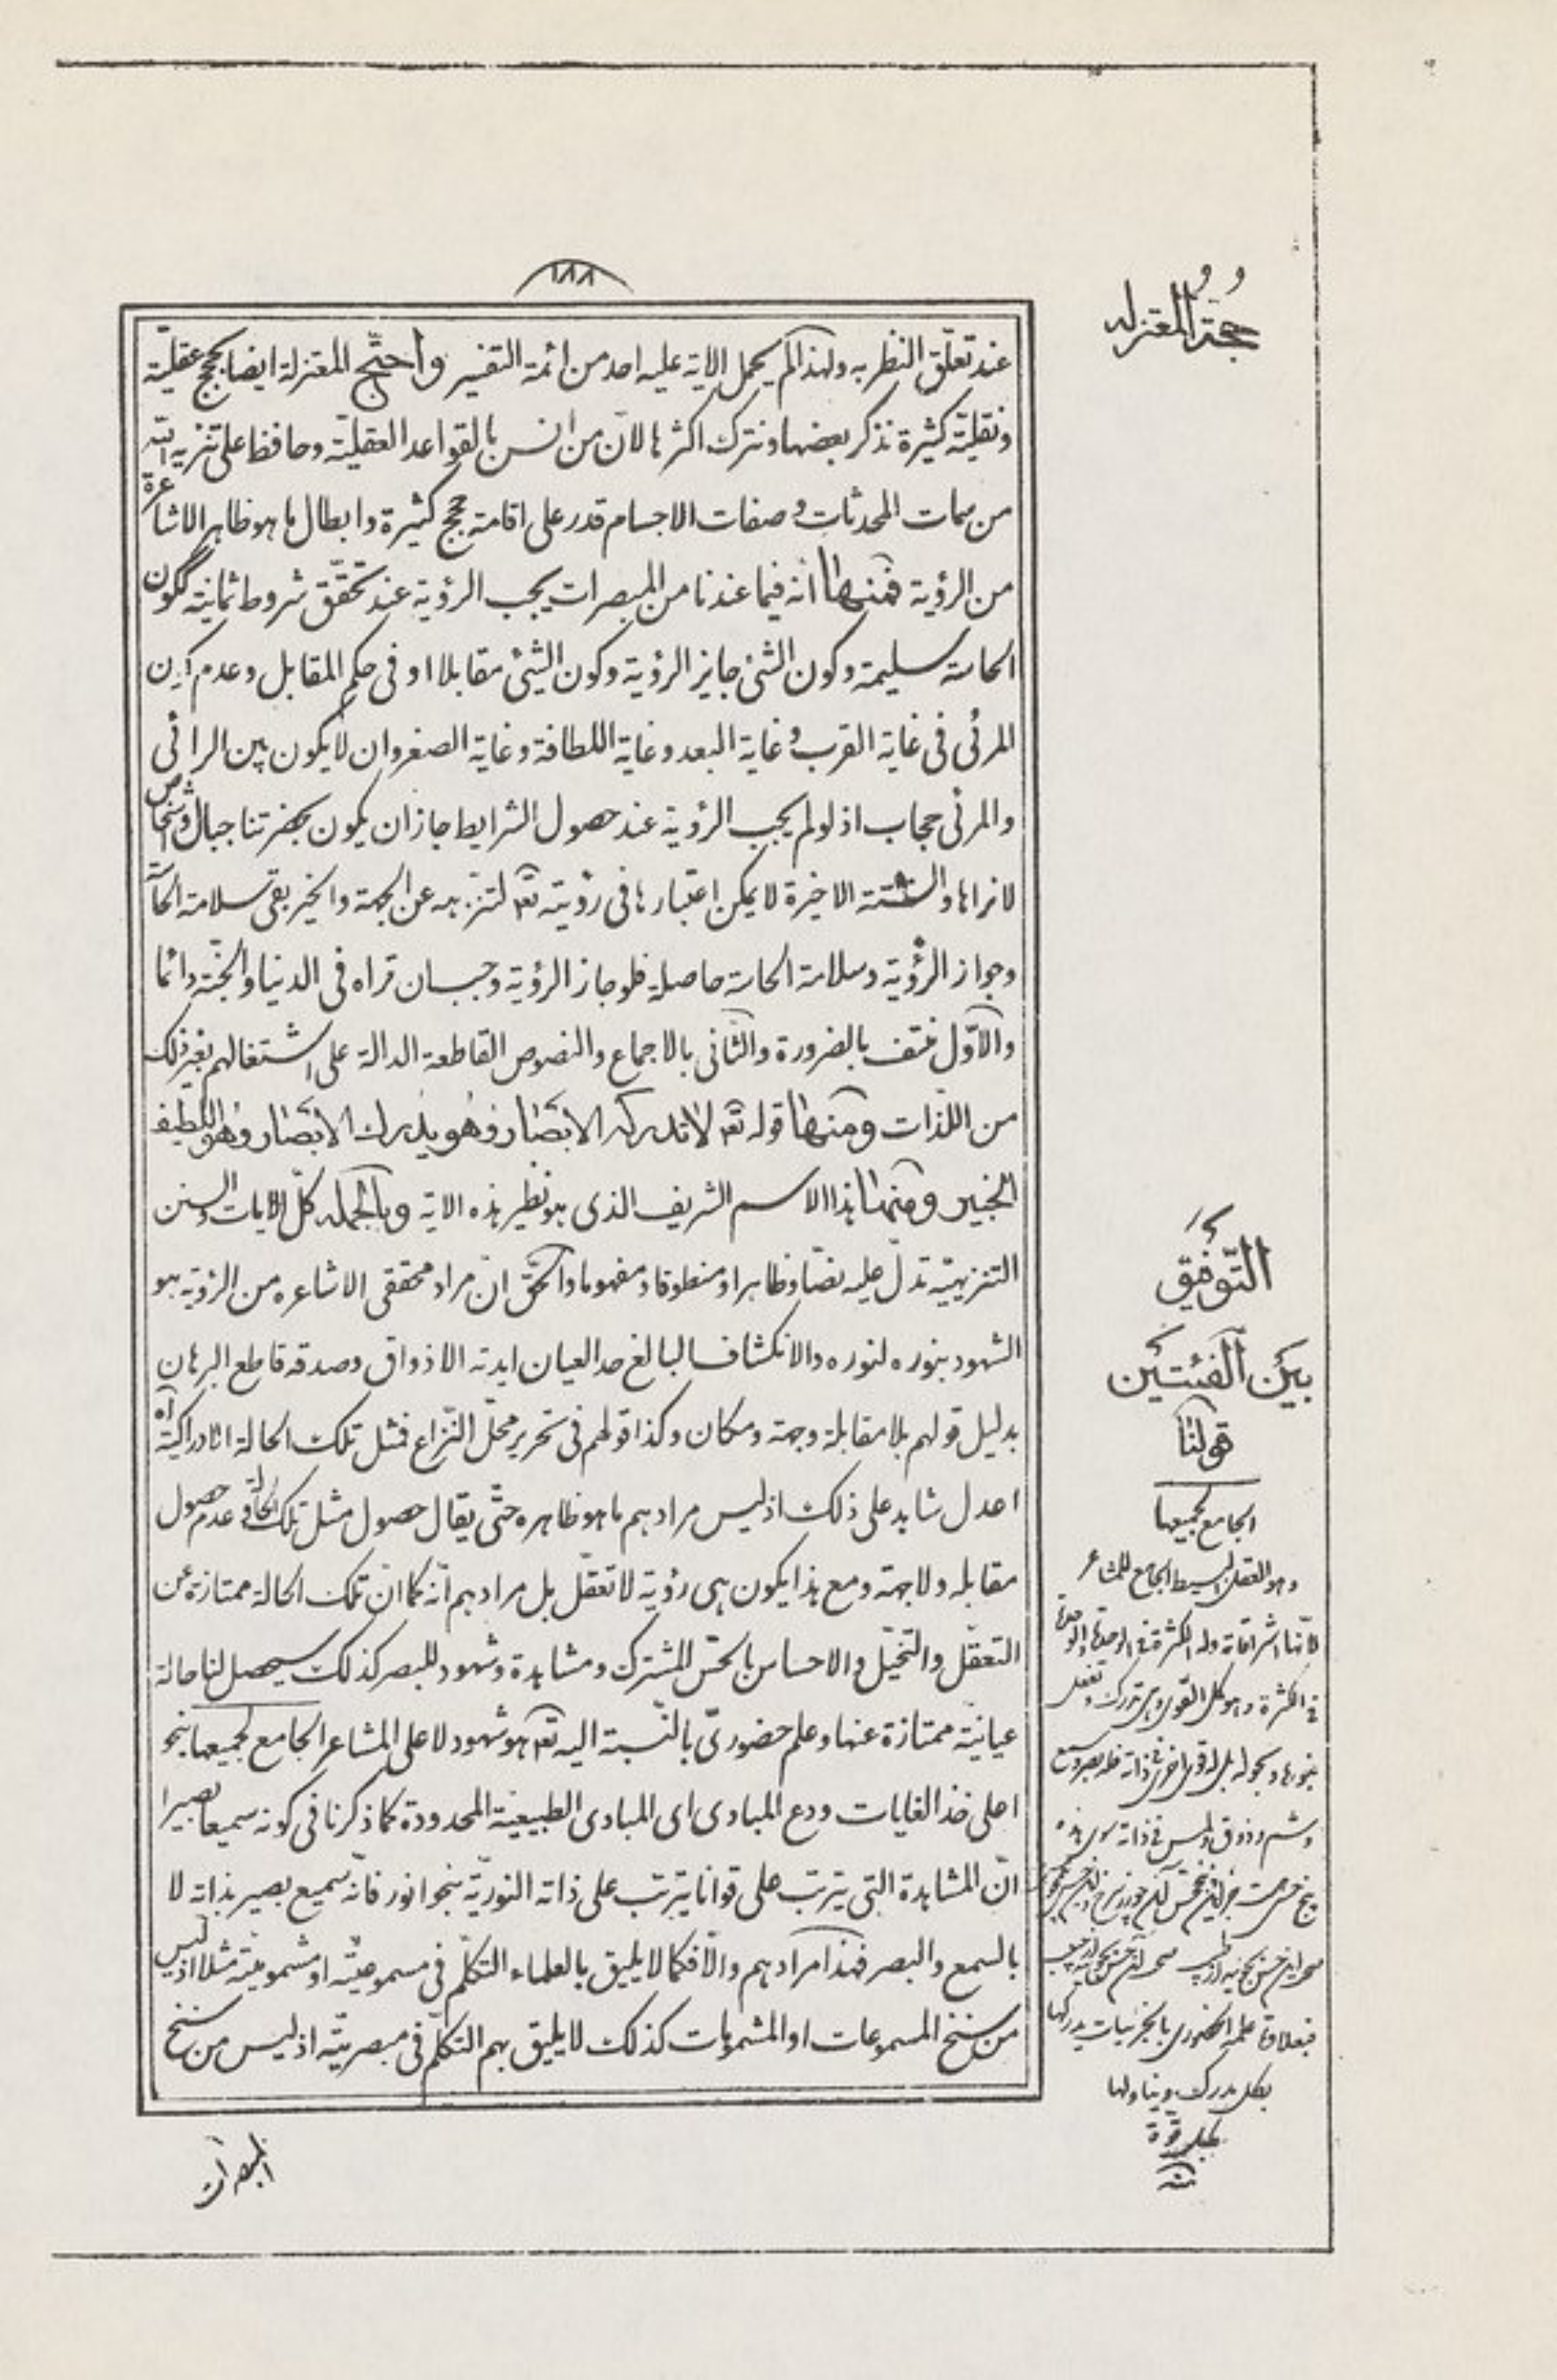 ١٨٨
حجة المعتزله
عند تعلّق النظر به ولهذا لم يحمل الاية عليه احد من ائمة التفسير واحتجّ المعتزلة ايضا بحجج عقليّة
ونقليّة كثيرة نذكر بعضها ونترك اكثرها لانّ من انس بالقواعد العقليّة وحافظ على تنزيه الله
من سمات المحدثات وصفات الاجسام قدر على اقامة حجج كثيرة وابطال ما هو ظاهر الاشاعرة
من الرؤية فمنها انّه فيما عندنا من المبصرات يجب الرؤية عند تحقّق شروط ثمانية ككون
الحاسة سليمة وكون الشئ جايز الرؤية وكون الشئ مقابلا او فى حكم المقابل وعدم كون
المرئى فى غاية القرب وغاية البعد وغاية اللطافة وغاية الصغر وان لا يكون بين الرائى
والمرئى حجاب اذ لو لم يجب الرؤية عند حصول الشرايط جاز ان يكون بحضرتنا جبال واشخاص
لا نراها والستّة الاخيرة لا يمكن اعتبارها فى رؤيته تعه لتنزهه عن الجهة والحيّز بقى سلامة الحاسّة
وجواز الرؤية وسلامة الحاسة حاصلة فلو جاز الرؤية وجب ان نراه فى الدنيا والجنّة دائما
والاوّل منتف بالضرورة والثّانى بالاجماع والنصوص القاطعة الدالة على اشتغالهم بغير ذلك
من اللذّات ومنها قوله تعه لا تدركه الابصار وهو يدرك الابصار وهو اللطيف
الخبير ومنها هذا الاسم الشريف الذى هو نظير هذه الاية وبالجمله كلّ الايات والسنن
التنزيهيّة تدلّ عليه نصّا وظاهرا ومنطوقا ومفهوما والحقّ انّ مراد محققى الاشاعره من الرؤية هو
الشهود بنوره لنوره والانكشاف البالغ حد العيان ايدته الاذواق وصدقه قاطع البرهان
بدليل قولهم بلا مقابلة وجهة ومكان وكذا قولهم فى تحرير محلّ النّزاع فمثل تلك الحالة الادراكيّة آه
اعدل شاهد على ذلك اذ ليس مرادهم ما هو ظاهره حتّى يقال حصول مثل تلك الحالة فى عدم حصول
مقابله ولا جهة ومع هذا يكون هى رؤية لا تعقّل بل مرادهم انّه كما انّ تلك الحالة ممتازة عن
التعقّل والتخيّل والاحساس بالحسّ المشترك ومشاهدة وشهود للبصر كذلك سيحصل لنا حالة
عيانيّة ممتازة عنها وعلم حضورىّ بالنّسبة اليه تعه هو شهود لا على المشاعر الجامع لجميعها بنحو
اعلى خذ الغايات ودع المبادى اى المبادى الطبيعيّة المحدودة كما ذكرنا فى كونه سميعا بصيرا
انّ المشاهدة التى يترتب على قوانا يترتب على ذاته النوريّة بنحو انور فانّه سميع بصير بذاته لا
بالسمع والبصر فهذا مرادهم والّا فكما لا يليق بالعلماء التكلّم فى مسموعيّته او مشموميّته مثلا اذ ليس
من سنخ المسموعات او المشمومات كذلك لا يليق بهم التكلّم فى مبصريّته اذ ليس من سنخ
المبصرات
التّوفيق
بين الفئتين
قولنا
الجامع لجميعها
وهو العقل البسيط الجامع للمشاعر
لانّها اشراقاته وله الكثرة فى الوحدة والوحدة
فى الكثرة وهو كل القوى وهى تدرك وتفعل
وشم وذوق ولمس فى ذاته سوى هذه
فبعلاقة علمه الحضورى بالجزئيات يدركها
بكل مدرك ويناولها
بكل قوة
منه